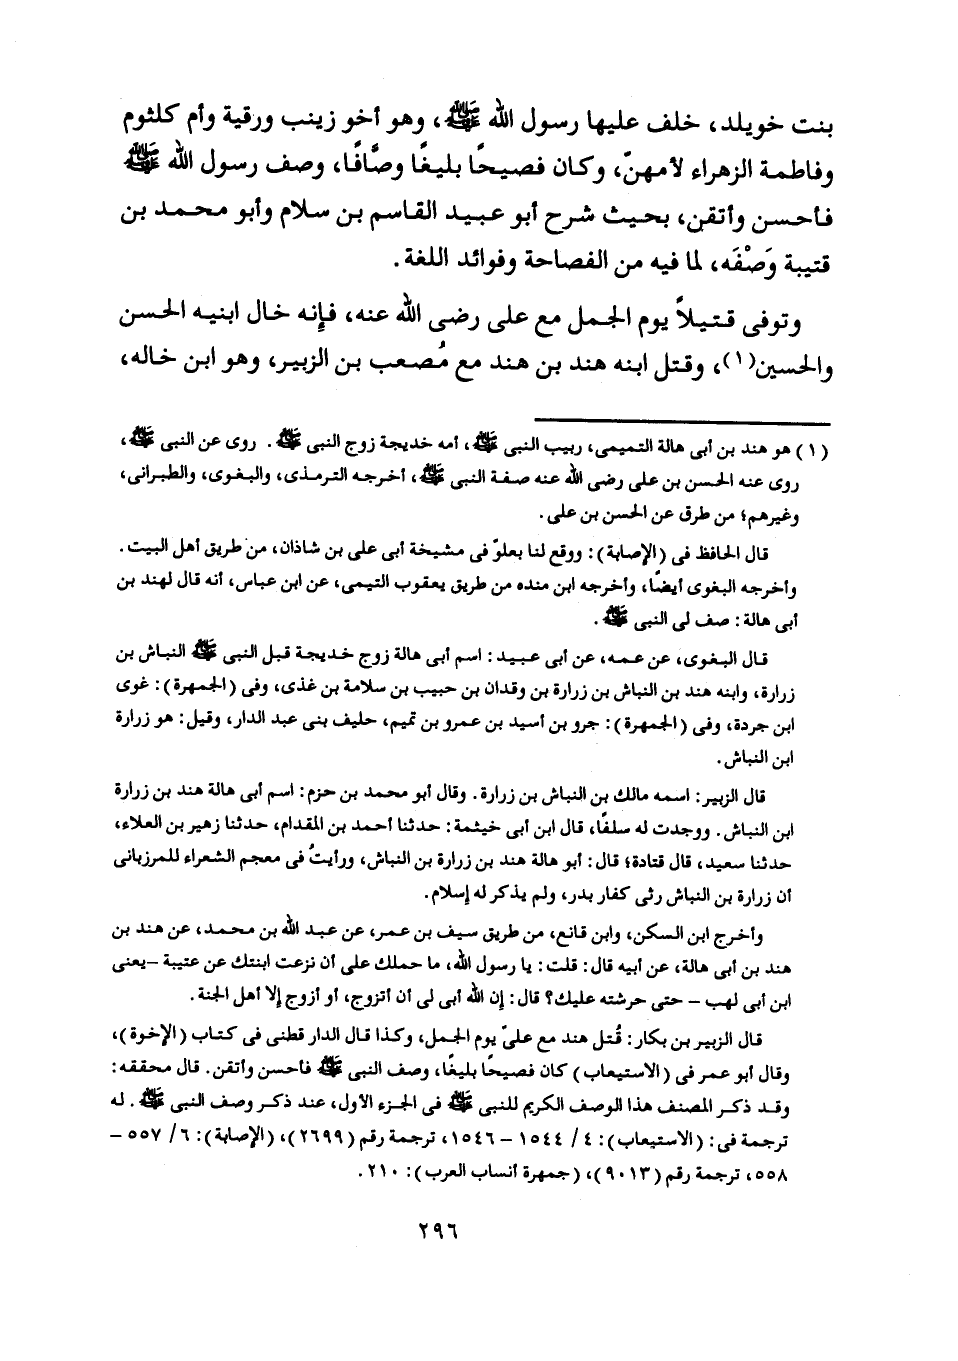 بنت خويلد، خلف عليها رسول الله ﷺ، وهو أخو زينب ورقية وأم كلثوم
وفاطمة الزهراء لأمهنّ، وكان فصيحًا بليغًا وصَّافًا، وصف رسول الله ﷺ
فأحسن وأتقن، بحيث شرح أبو عبيد القاسم بن سلام وأبو محمد بن
قتيبة وَصْفَه، لما فيه من الفصاحة وفوائد اللغة.
وتوفى قتيلاً يوم الجمل مع على رضى الله عنه، فإنه خال ابنيه الحسن
والحسين(١)، وقتل ابنه هند بن هند مع مُصعب بن الزبير، وهو ابن خاله،
(١) هو هند بن أبى هالة التميمى، ربيب النبى ﷺ، أمه خديجة زوج النبى ﷺ. روى عن النبى ﷺ،
روى عنه الحسن بن على رضى الله عنه صفة النبى ﷺ، أخرجه الترمذى، والبغوى، والطبرانى،
وغيرهم؛ من طرق عن الحسن بن على.
قال الحافظ فى (الإصابة): ووقع لنا بعلوّ فى مشيخة أبى على بن شاذان، من طريق أهل البيت.
وأخرجه البغوى أيضًا، وأخرجه ابن منده من طريق يعقوب التيمى، عن ابن عباس، أنه قال لهند بن
أبى هالة: صف لى النبى ﷺ.
قال البغوى، عن عمه، عن أبى عبيد: اسم أبى هالة زوج خديجة قبل النبى ﷺ النباش بن
زرارة، وابنه هند بن النباش بن زرارة بن وقدان بن حبيب بن سلامة بن غذى، وفى (الجمهرة): غوى
ابن جردة، وفى (الجمهرة): جرو بن أسيد بن عمرو بن تميم، حليف بنى عبد الدار، وقيل: هو زرارة
ابن النباش.
قال الزبير: اسمه مالك بن النباش بن زرارة. وقال أبو محمد بن حزم: اسم أبى هالة هند بن زرارة
ابن النباش. ووجدت له سلفًا، قال ابن أبى خيثمة: حدثنا أحمد بن المقدام، حدثنا زهير بن العلاء،
حدثنا سعيد، قال قتادة؛ قال: أبو هالة هند بن زرارة بن النباش، ورأيتُ فى معجم الشعراء للمرزبانى
أن زرارة بن النباش رثى كفار بدر، ولم يذكر له إسلام.
وأخرج ابن السكن، وابن قانع، من طريق سيف بن عمر، عن عبد الله بن محمد، عن هند بن
هند بن أبى هالة، عن أبيه قال: قلت: يا رسول الله، ما حملك على أن نزعت ابنتك عن عتيبة –يعنى
ابن أبى لهب – حتى حرشته عليك؟ قال: إن الله أبى لى أن أتزوج، أو أزوج إلا أهل الجنة.
قال الزبير بن بكار: قُتل هند مع علىّ يوم الجمل، وكذا قال الدار قطنى فى كتاب (الإخوة)،
وقال أبو عمر فى (الاستيعاب) كان فصيحًا بليغًا، وصف النبى ﷺ فأحسن وأتقن. قال محققه:
وقد ذكر المصنف هذا الوصف الكريم للنبى ﷺ فى الجزء الأول، عند ذكر وصف النبى ﷺ. له
ترجمة فى: (الاستيعاب): ٤ / ١٥٤٤ – ١٥٤٦، ترجمة رقم (٢٦٩٩)، (الإصابة): ٦/ ٥٥٧ –
٥٥٨، ترجمة رقم (٩٠١٣)، (جمهرة أنساب العرب): ٢١٠.
٢٩٦